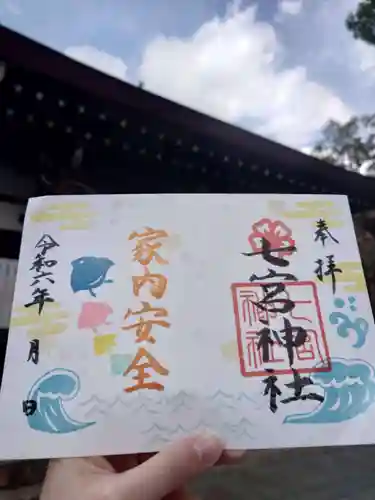 奉拝
七宮神社
家内安全
令和六年 月 日